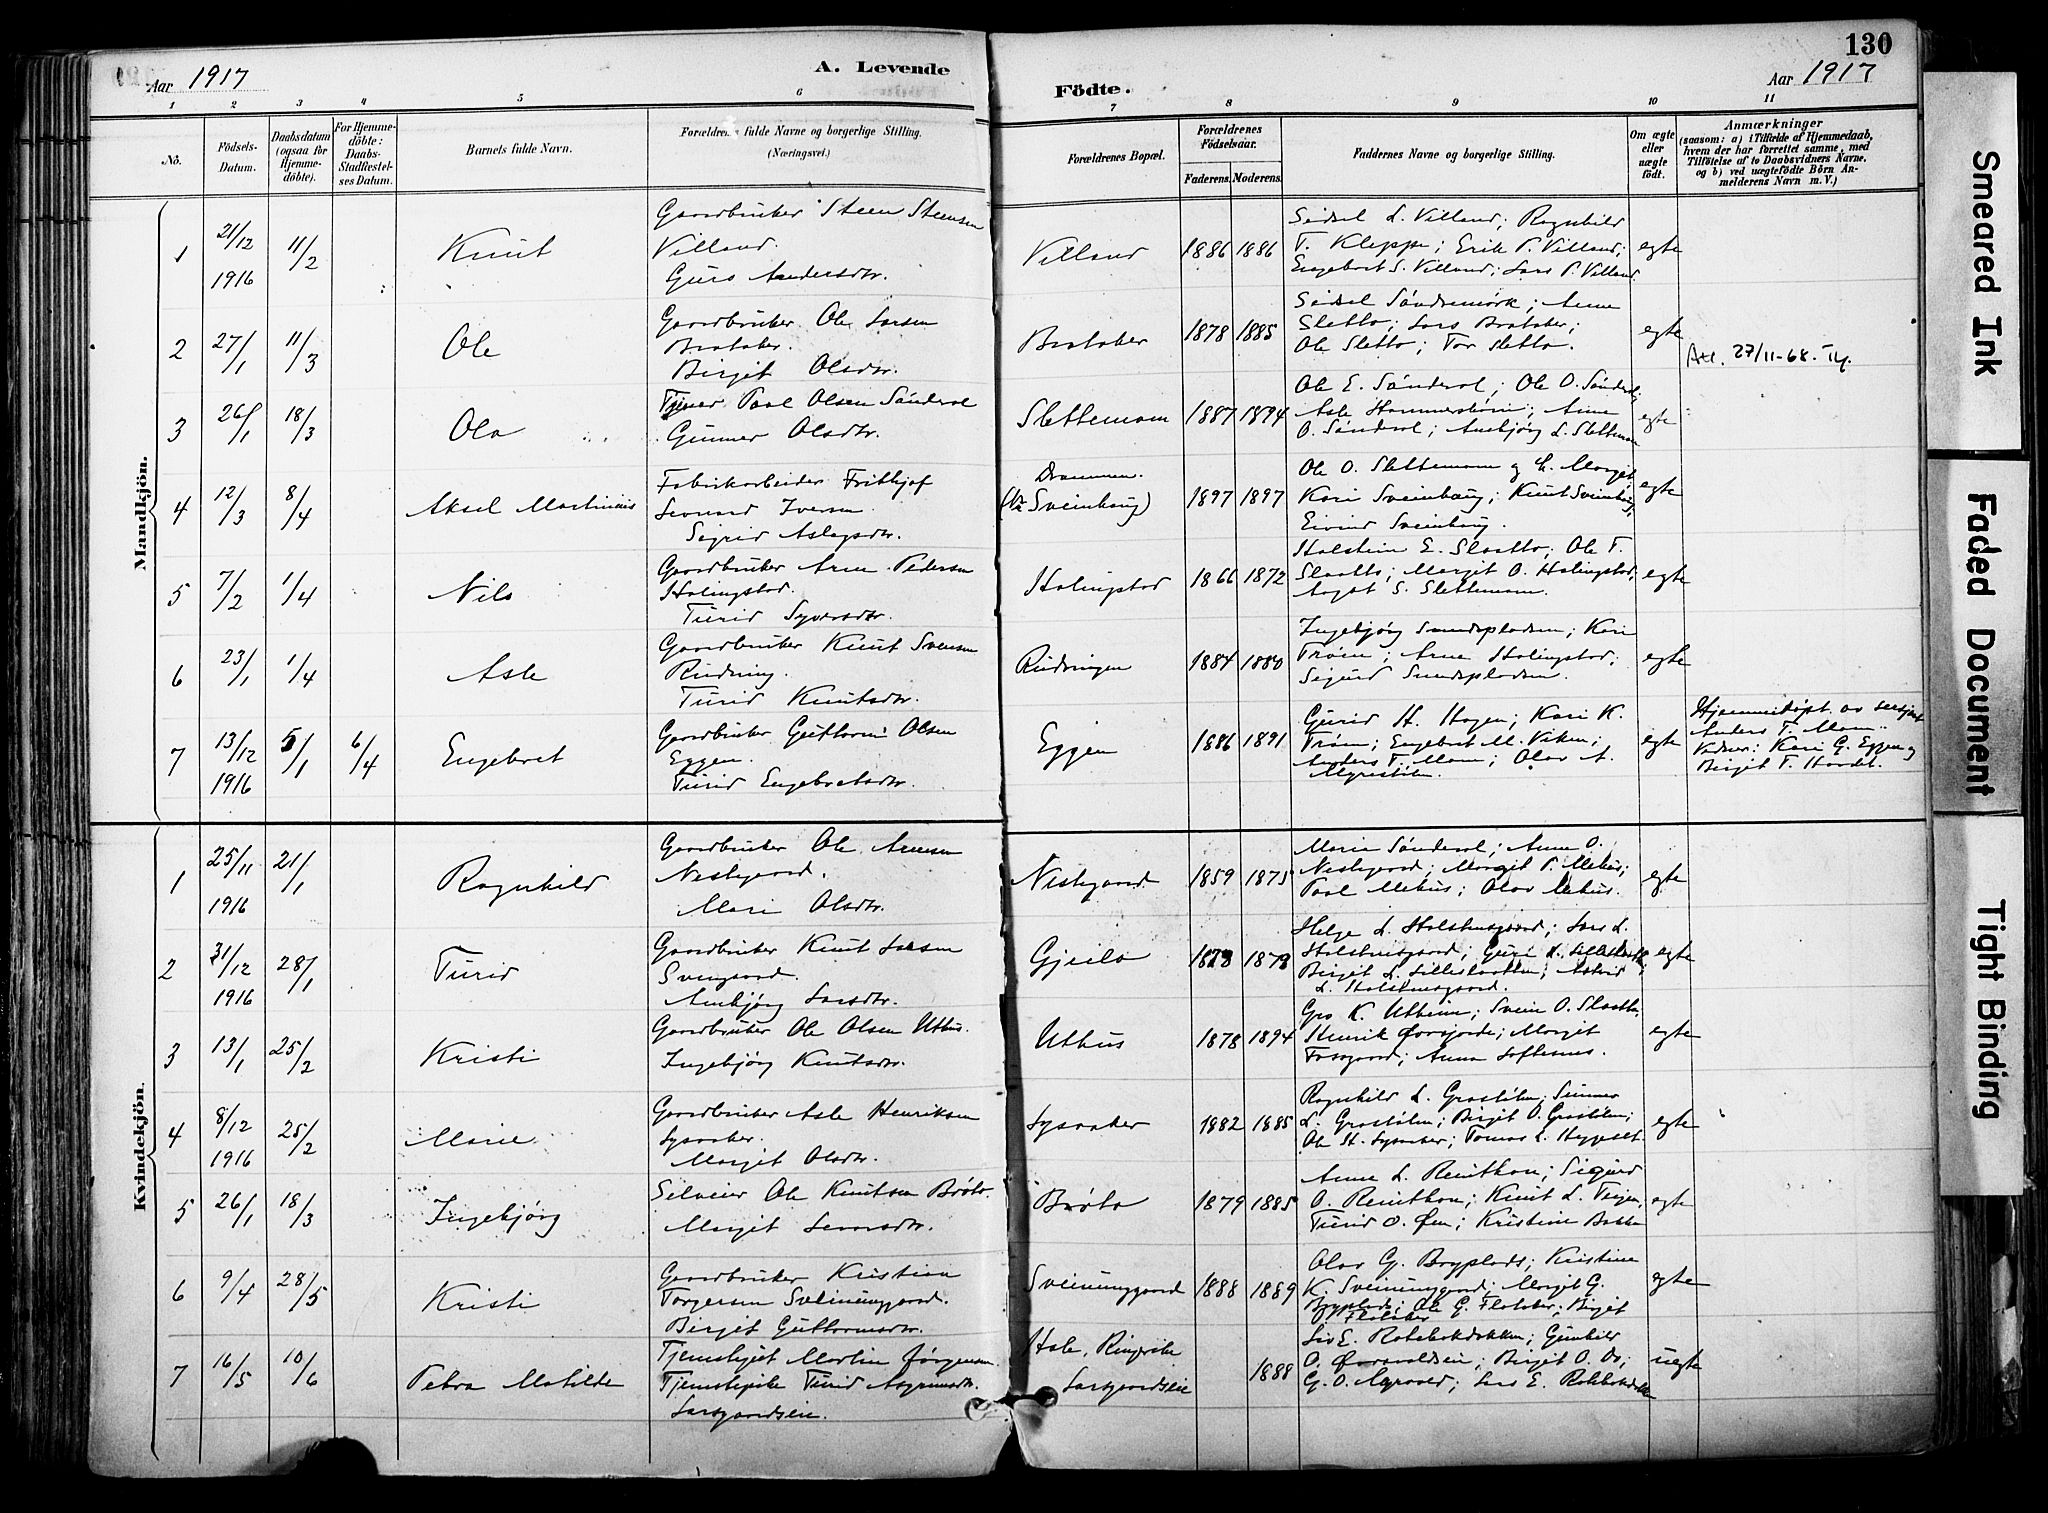 130
Aar 1917
A. Levende
Födte.
Aar 1917
1 2 3 4 5 6 7 8 9 10 11
No.
Födsels-Datum.
Daabsdatum (ogsaa for Hjemme-döbte).
For Hjemme-döbte: Daabs-Stadfæstel-ses Datum.
Barnets fulde Navn.
Forældrenes fulde Navne og borgerlige Stilling. (Næringsvei.)
Forældrenes Bopæl.
Forældrenes Födselsaar.
Faderens. Moderens.
Faddernes Navne og borgerlige Stilling.
Om ægte eller uægte födt.
Anmærkninger
(saasom: a) i Tilfælde af Hjemmedaab, hvem der har forrettet samme, med Tilföielse af to Daabsvidners Navne, og b) ved uægtefödte Börn An-melderens Navn m. V.)
Mandkjön.
1 21/12 1916 11/2 Knut
Gaardbruker Steen Steensen
Villand.
Guro Andersdtr.
Villand 1886 1886
Seidsel L. Villand; Ragnhild
T. Kleppe; Erik P. Villand;
Engebret S. Villand; Lars P. Villand.
egte
2 27/1 11/3 Ole
Gaardbruker Ole Larsen
Brataker.
Birgit Olsdtr.
Brataker 1878 1885
Seidsel Søndremørk; Anne
Sletto; Lars Brataker;
Ole Sletto; Tor Sletto.
egte
Att. 27/11-68.
3 26/1 18/3 Ola
Tjener Paal Olsen Sønderol
Gunner Olsdtr.
Slettemoen 1887 1894
Ole E. Sønderol; Ole O. Sønderol;
Asle Hammersbøen; Anne
O. Sønderol; Ambjørg L. Slettemoen
egte
4 12/3 8/4 Aksel Martinius
Fabrikarbeider Frithjof
Leonard Iversen.
Sigrid Aslegsdtr.
Drammen.
(Sveinhaug) 1897 1897
Ole O. Slettemoen og h. Margit,
Kari Sveinhaug; Knut Sveinhaug,
Eivind Sveinhaug.
egte
5 7/2 1/4 Nils
Gaardbruker Arne Pedersen
Halingstad.
Turid Syversdtr.
Halingstad 1866 1872
Halstein E. Slaatto; Ole T.
Slaatto; Margit O. Halingstad,
Aagot S. Slettemoen.
egte
6 23/1 1/4 Asle
Gaardbruker Knut Svensen
Rudning.
Turid Knutsdtr.
Rudningen 1884 1880
Ingebjørg Sundspladsen; Kari
Trøim; Arne Halingstad;
Sigurd Sundspladsen.
egte
7 13/12 1916 5/1 6/4 Engebret
Gaardbruker Guttorm Olsen
Eggen.
Turid Engebretsdtr.
Eggen 1886 1891
Gurid H. Hagen; Kari K.
Trøim; Engebret M. Viken;
Anders T. Moen; Olav A.
Myrestølen.
egte
Hjemmedøpt av
Anders T. Moen.
Vidner: Kari G. Eggen og
Birgit T. Hardet.
Kvindekjön.
1 25/11 1916 21/1 Ragnhild
Gaardbruker Ole Arnesen
Nestegaard.
Mari Olsdtr.
Nestegaard 1859 1875
Marie Sønderol; Anne O.
Nestegaard; Margit P. Mehus;
Paal Mehus; Olav Mehus.
egte
2 31/12 1916 28/1 Turid
Gaardbruker Knut Larsen
Svengaard.
Ambjørg Larsdtr.
Gjeilo 1878 1878
Helge L. Halstensgaard; Lars L.
Halstensgaard; Guri L. Lilleslaatten;
Birgit L. Lilleslaatten; Astrid
L. Halstensgaard.
egte
3 13/1 25/2 Kristi
Gaardbruker Ole Olsen Uthus.
Ingebjørg Knutsdtr.
Uthus 1878 1894
Gro K. Utheim; Svein O. Slaatto,
Henrik Øvregjerde; Margit
Fossgaard; Anna Loftesnes.
egte
4 8/12 1916 25/2 Marie
Gaardbruker Asle Henriksen
Sysaaker.
Margit Olsdtr.
Sysaaker 1882 1885
Ragnhild L. Grøstølen; Gunner
L. Grøstølen; Birgit O. Grøstølen;
Ole H. Sysaaker; Tomas L.
egte
5 26/1 18/3 Ingebjørg
Selveier Ole Knutsen Brøto.
Margit Larsdtr.
Brøto 1879 1885
Anne L. Reinton; Sigurd
O. Reinton; Knut L. Teigen,
Turid O. Øen; Kristine Bakke
egte
6 9/4 28/5 Kristi
Gaardbruker Kristian
Torgersen Sveinunggaard.
Birgit Guttormsdtr.
Sveinunggaard 1888 1889
Olav G. Bryplads; Kristine
K. Sveinunggaard; Margit G.
Bryplads; Ole G. Flotaker; Birgit
Flotaker
egte
7 16/5 10/6 Petra Matilde
Tjenestgut Martin Jørgensen
Tjenestepike Turid Asgrimsdtr.
Larsgaardseie.
Hole, Ringerike
Larsgaardseie 1888
Liv E. Rotebakdokken; Gunhild
O. Øvrevoldseie; Birgit O. Do;
G. O. Myrvold; Lars E. Rotebakdokken
uegte
Smeared Ink
Faded Document
Tight Binding